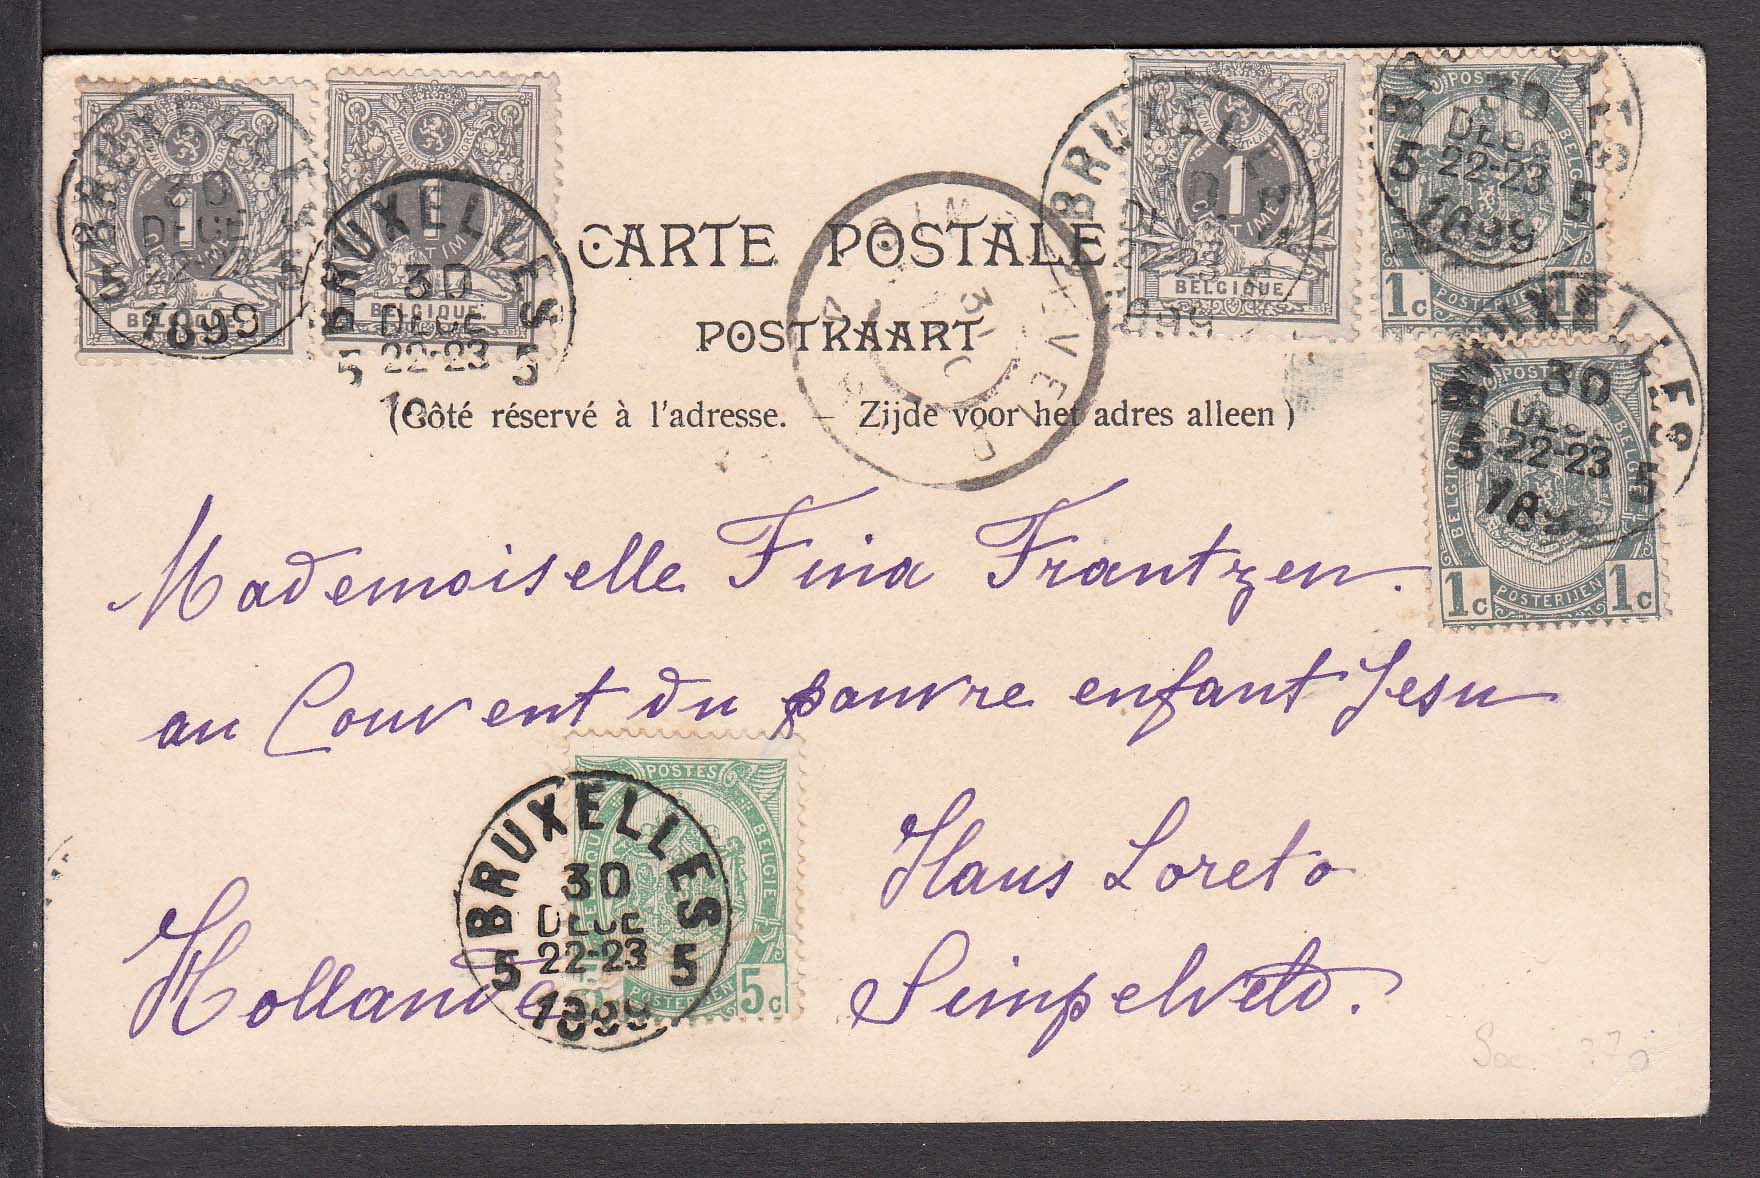 CARTE POSTALE
POSTKAART
(Côté réservé à l'adresse. — Zijde voor het adres alleen)
Mademoiselle Fina Frantzen.
au Couvent du pauvre enfant Jesu
Haus Loreto
Hollande
Simpelveld.
1 CENTIME
BELGIQUE
BRUXELLES
5 5
30
DECE
22-23
1899
1 CENTIME
BELGIQUE
BRUXELLES
30
DECE
5 22-23 5
1 CENTIME
BELGIQUE
BRUXELLES
22-23
1899
POSTES
BELGIE
1c POSTERIJEN 1c
BRUXELLES
30
DECE
5 22-23 5
1899
POSTES
BELGIQUE BELGIE
1c POSTERIJEN 1c
BRUXELLES
30
DECE
5 22-23 5
POSTES
BELGIQUE BELGIE
POSTERIJEN 5c
BRUXELLES
30
DECE
5 22-23 5
1899
31